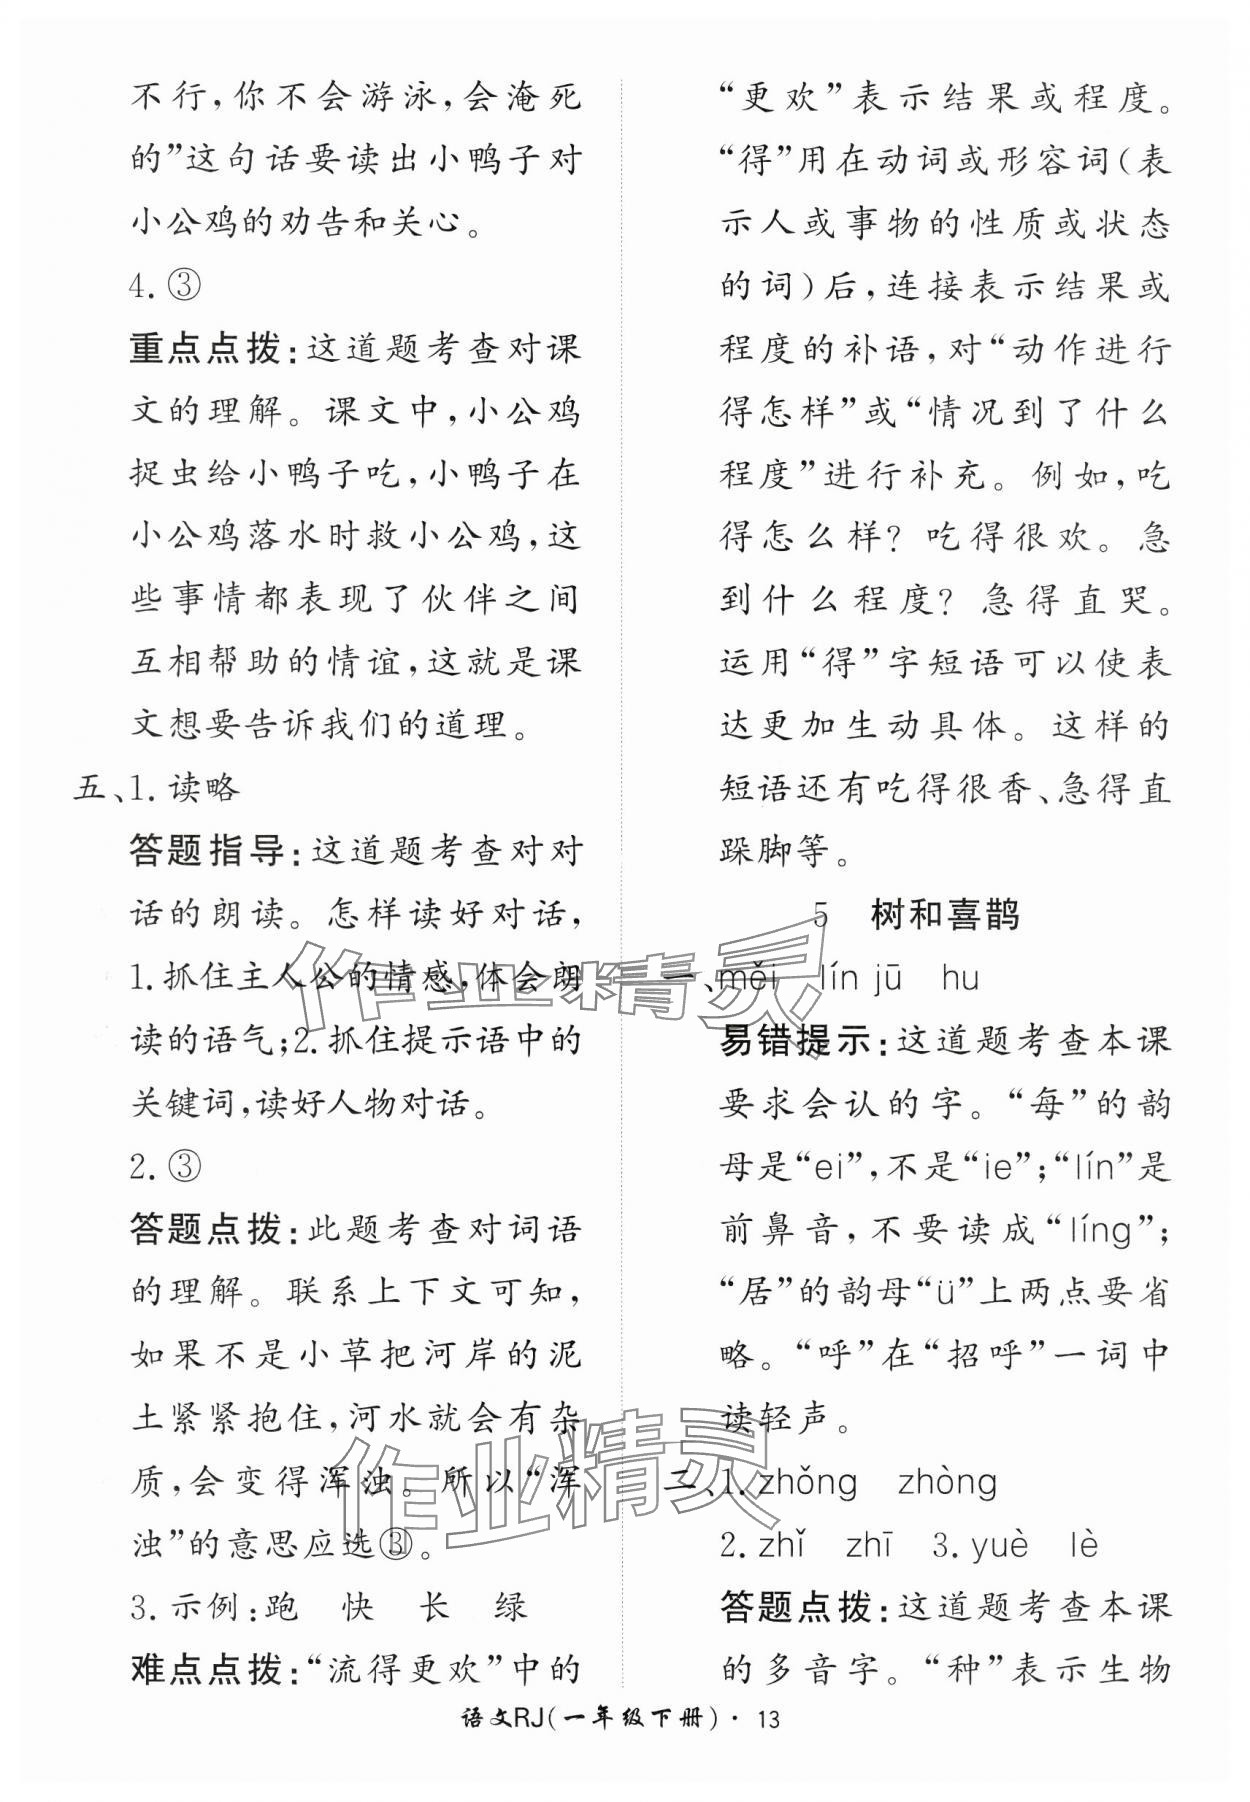 不行,你不会游泳,会淹死
的”这句话要读出小鸭子对
小公鸡的劝告和关心。
4.③
重点点拨:这道题考查对课
文的理解。课文中,小公鸡
捉虫给小鸭子吃,小鸭子在
小公鸡落水时救小公鸡,这
些事情都表现了伙伴之间
互相帮助的情谊,这就是课
文想要告诉我们的道理。
五、1.读略
答题指导:这道题考查对对
话的朗读。怎样读好对话,
1.抓住主人公的情感,体会朗
读的语气;2.抓住提示语中的
关键词,读好人物对话。
2.③
答题点拨:此题考查对词语
的理解。联系上下文可知,
如果不是小草把河岸的泥
土紧紧抱住,河水就会有杂
质,会变得浑浊。所以“浑
浊”的意思应选③。
3.示例:跑 快 长 绿
难点点拨:“流得更欢”中的
“更欢”表示结果或程度。
“得”用在动词或形容词(表
示人或事物的性质或状态
的词)后,连接表示结果或
程度的补语,对“动作进行
得怎样”或“情况到了什么
程度”进行补充。例如,吃
得怎么样?吃得很欢。急
到什么程度?急得直哭。
运用“得”字短语可以使表
达更加生动具体。这样的
短语还有吃得很香、急得直
跺脚等。
5 树和喜鹊
一、měi lín jū hu
易错提示:这道题考查本课
要求会认的字。“每”的韵
母是“ei”,不是“ie”;“lín”是
前鼻音,不要读成“líng”;
“居”的韵母“ü”上两点要省
略。“呼”在“招呼”一词中
读轻声。
二、1.zhǒng zhòng
2.zhǐ zhī 3.yuè lè
答题点拨:这道题考查本课
的多音字。“种”表示生物
语文RJ(一年级下册)·13
作业精灵
作业精灵